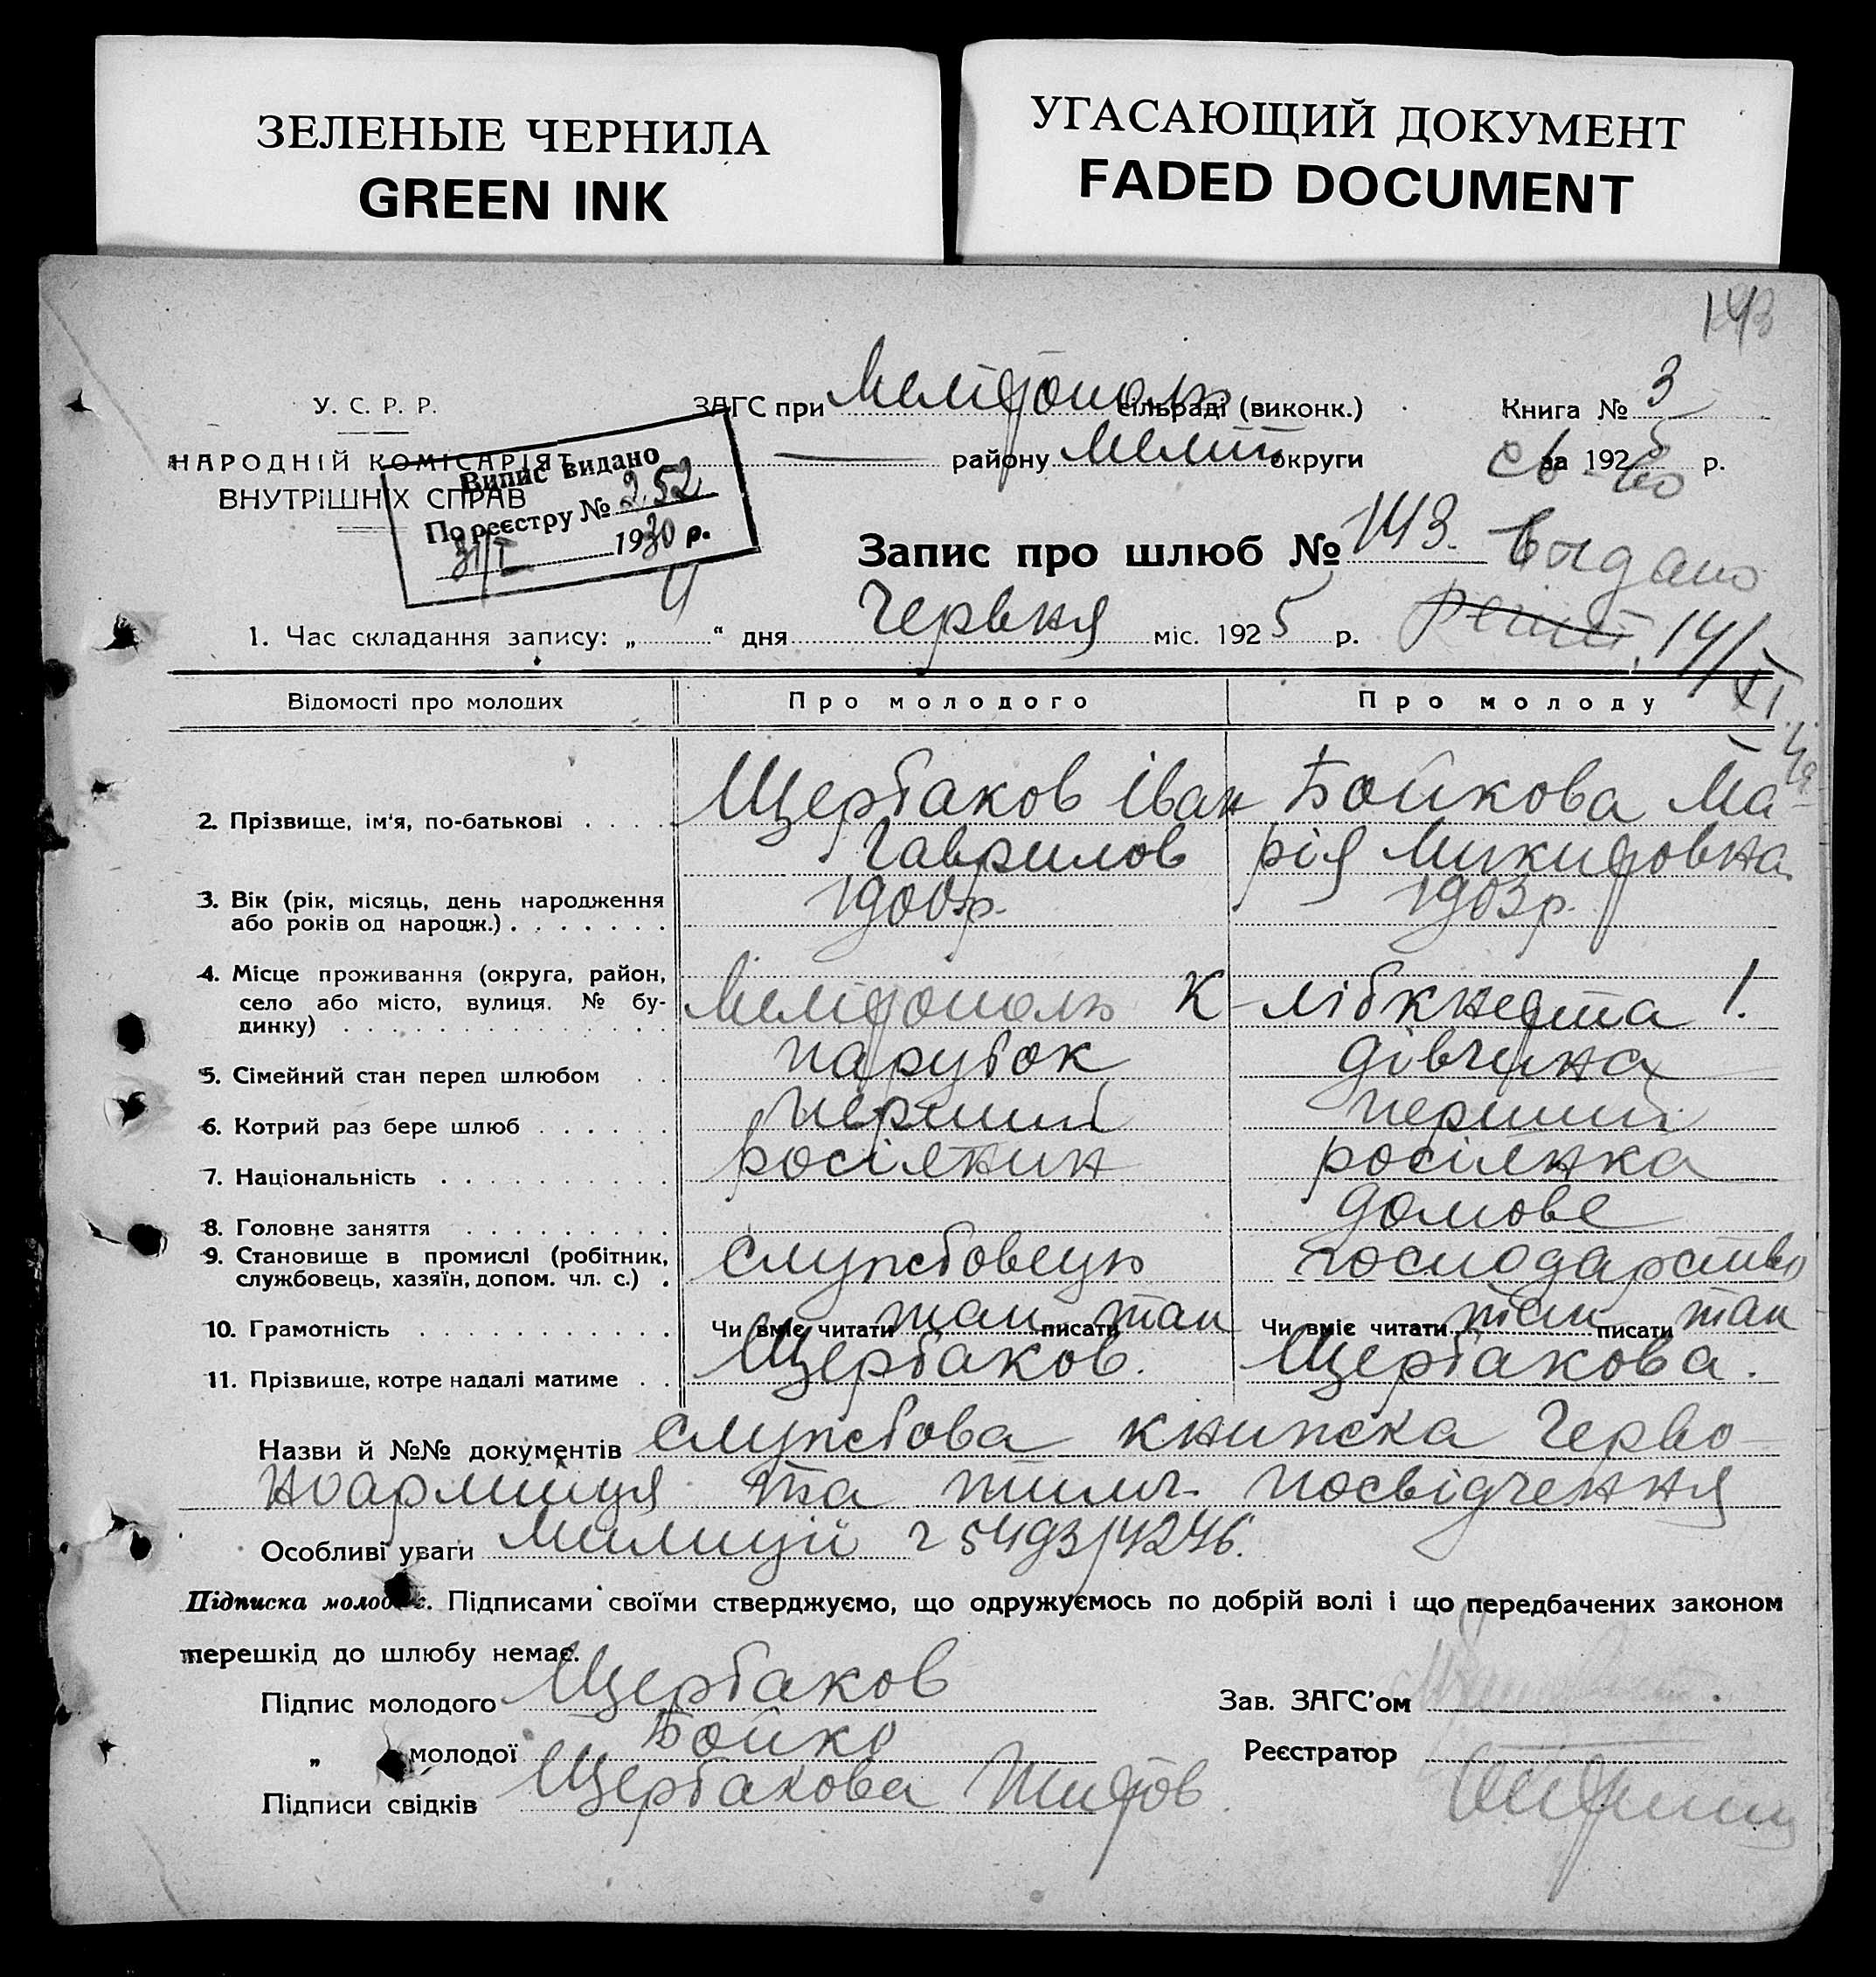 ЗЕЛЕНЫЕ ЧЕРНИЛА
GREEN INK
УГАСАЮЩИЙ ДОКУМЕНТ
FADED DOCUMENT
143
У. С. Р. Р.
НАРОДНІЙ КОМІСАРІЯТ
ВНУТРІШНІХ СПРАВ
Випис видано
По реєстру № 252
31/I 1930 р.
ЗАГС при Мелітополь сільраді (виконк.)
Книга № 3
району Меліт округи
за 1925 р.
св-во
Запис про шлюб № 143.
выдано
14/XI
1. Час складання запису: „ 4 “ дня Червня міс. 1925 р.
Відомості про молодих Про молодого Про молоду
2. Прізвище, ім'я, по-батькові Щербаков Іван Бойкова Ма-
Гаврилов рія Микитовна
3. Вік (рік, місяць, день народження 1900 р. 1903 р.
або років од народж.)
4. Місце проживання (округа, район,
село або місто, вулиця. № бу- Мелітополь К-лібкнехта 1.
динку)
5. Сімейний стан перед шлюбом парубок дівчина
6. Котрий раз бере шлюб перший перший
7. Національність росіянин росіянка
8. Головне заняття домове
9. Становище в промислі (робітник, службовець господарство
службовець, хазяїн, допом. чл. с.)
10. Грамотність Чи вміє читати так писати так Чи вміє читати так писати так
11. Прізвище, котре надалі матиме Щербаков. Щербакова.
Назви й №№ документів службова книжка Черво
ноармійця та тимч. посвідчення
Особливі уваги Милиції 5493/4246.
Підписка молодих. Підписами своїми стверджуємо, що одружуємось по добрій волі і що передбачених законом
перешкід до шлюбу немає.
Підпис молодого Щербаков Зав. ЗАГС'ом
„ молодої Бойко Реєстратор
Підписи свідків Щербакова Титов